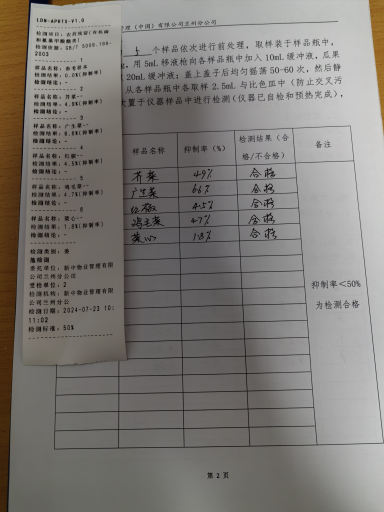 LDW-APNT5-V1.0
检测依据：GB/T 5009.199-
2003
检测结果：0.0%(抑制率)
检测结论：--
样品名称：芥菜--
检测结果：4.9%(抑制率)
检测结论：--
样品名称：广生菜--
检测结论：--
样品名称：红椒--
检测结果：4.5%(抑制率)
检测结论：--
样品名称：鸡毛菜--
检测结果：4.7%(抑制率)
检测结论：--
样品名称：菜心--
检测结果：1.8%(抑制率)
检测结论：--
检测类别：委
委托单位：新中物业管理有限
公司兰州分公司
受检单位：2
检测机构：新中物业管理有限
公司兰州分公
检测日期：2024-07-22 10:
11:02
检测标准：50%
理（中国）有限公司兰州分公司
5 个样品依次进行前处理，取样装于样品瓶中，
，用 5mL 移液枪向各样品瓶中加入 10mL 缓冲液，瓜果
20mL 缓冲液；盖上盖子后均匀摇荡 50-60 次，然后静
从各样品瓶中各取样 2.5mL 与比色皿中（防止交叉污
放置于仪器样品中进行检测(仪器已自检和预热完成)，
样品名称 抑制率（%） 检测结果（合格/不合格） 备注
芥菜 4.9% 合格
广生菜 6.6% 合格
红椒 4.5% 合格
鸡毛菜 4.7% 合格
菜心 1.8% 合格
抑制率<50%
为检测合格
第 2 页